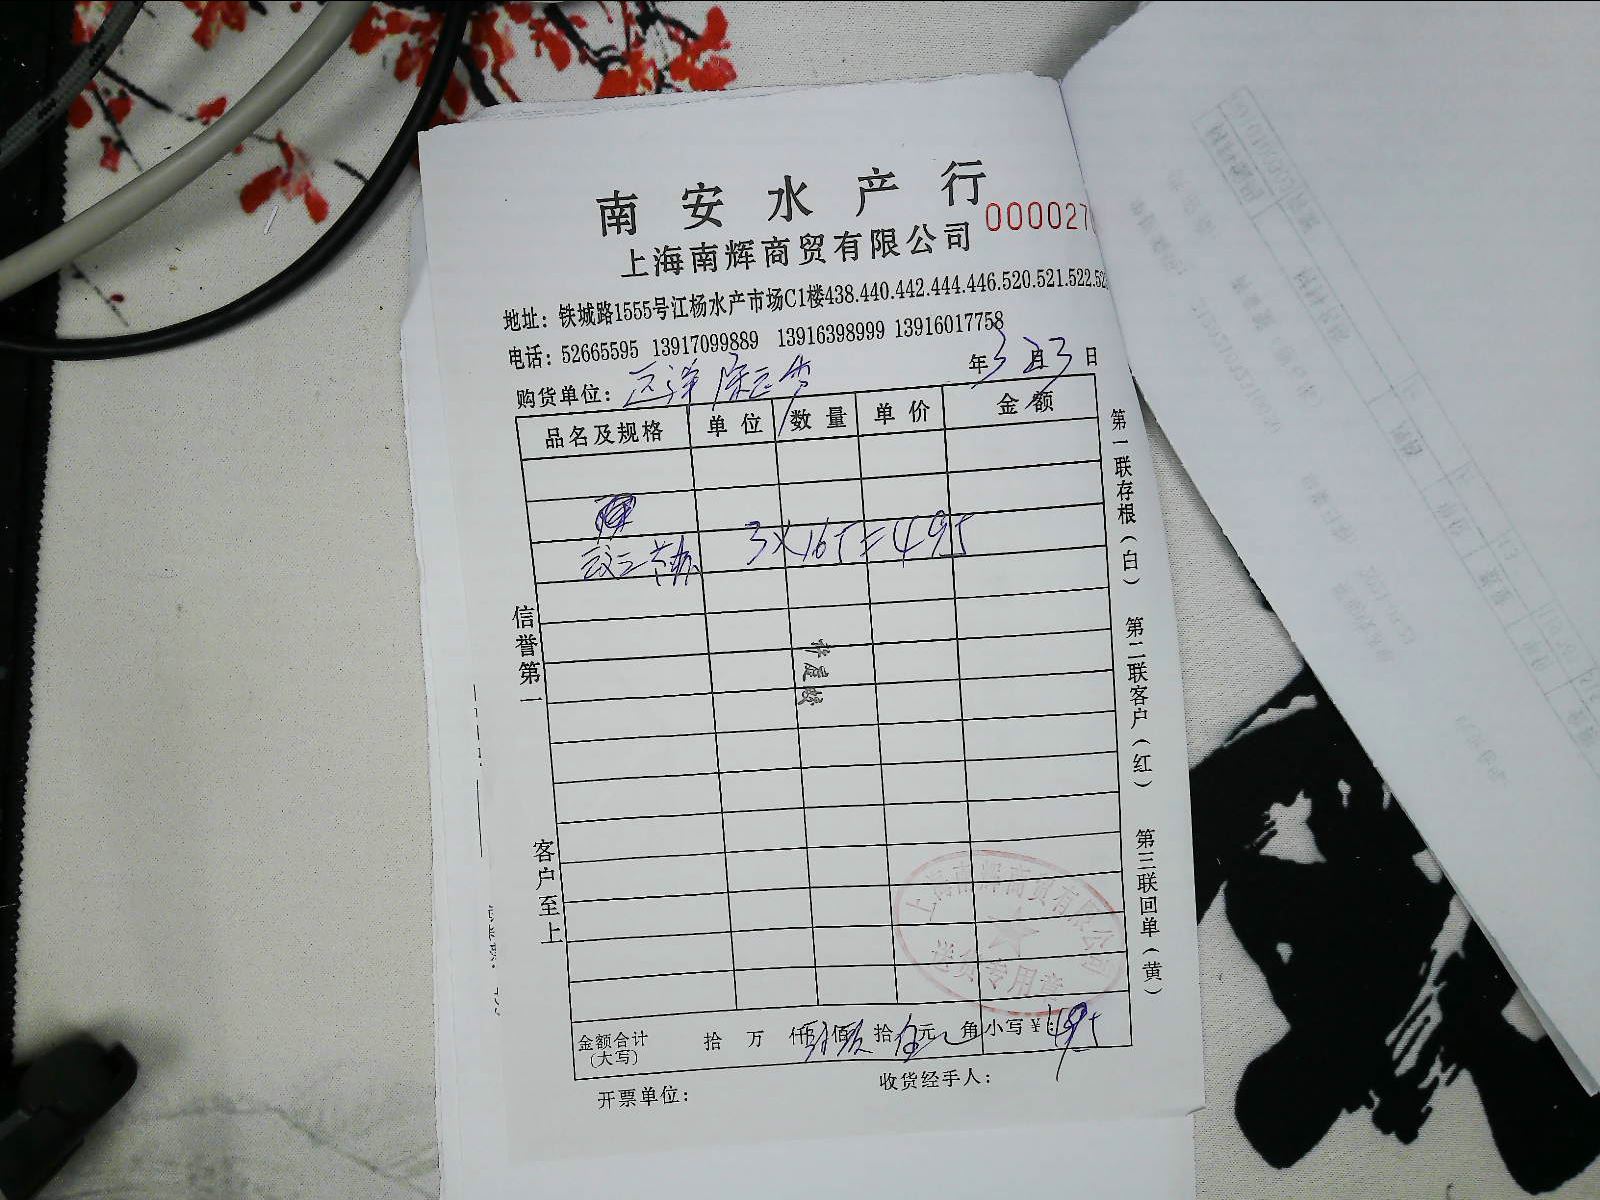 南安水产行
上海南辉商贸有限公司
000027
地址：铁城路1555号江杨水产市场C1楼438.440.442.444.446.520.521.522.52
电话：52665595 13917099889 13916398999 13916017758
购货单位：
年3月3日
品名及规格 单位 数量 单价 金额
3×165=495
信誉第一
客户至上
第一联存根（白）
第二联客户（红）
第三联回单（黄）
上海南辉商贸有限公司
送货专用章
金额合计（大写） 拾 万 仟 佰 拾 元 角 小写￥：495
开票单位：
收货经手人：